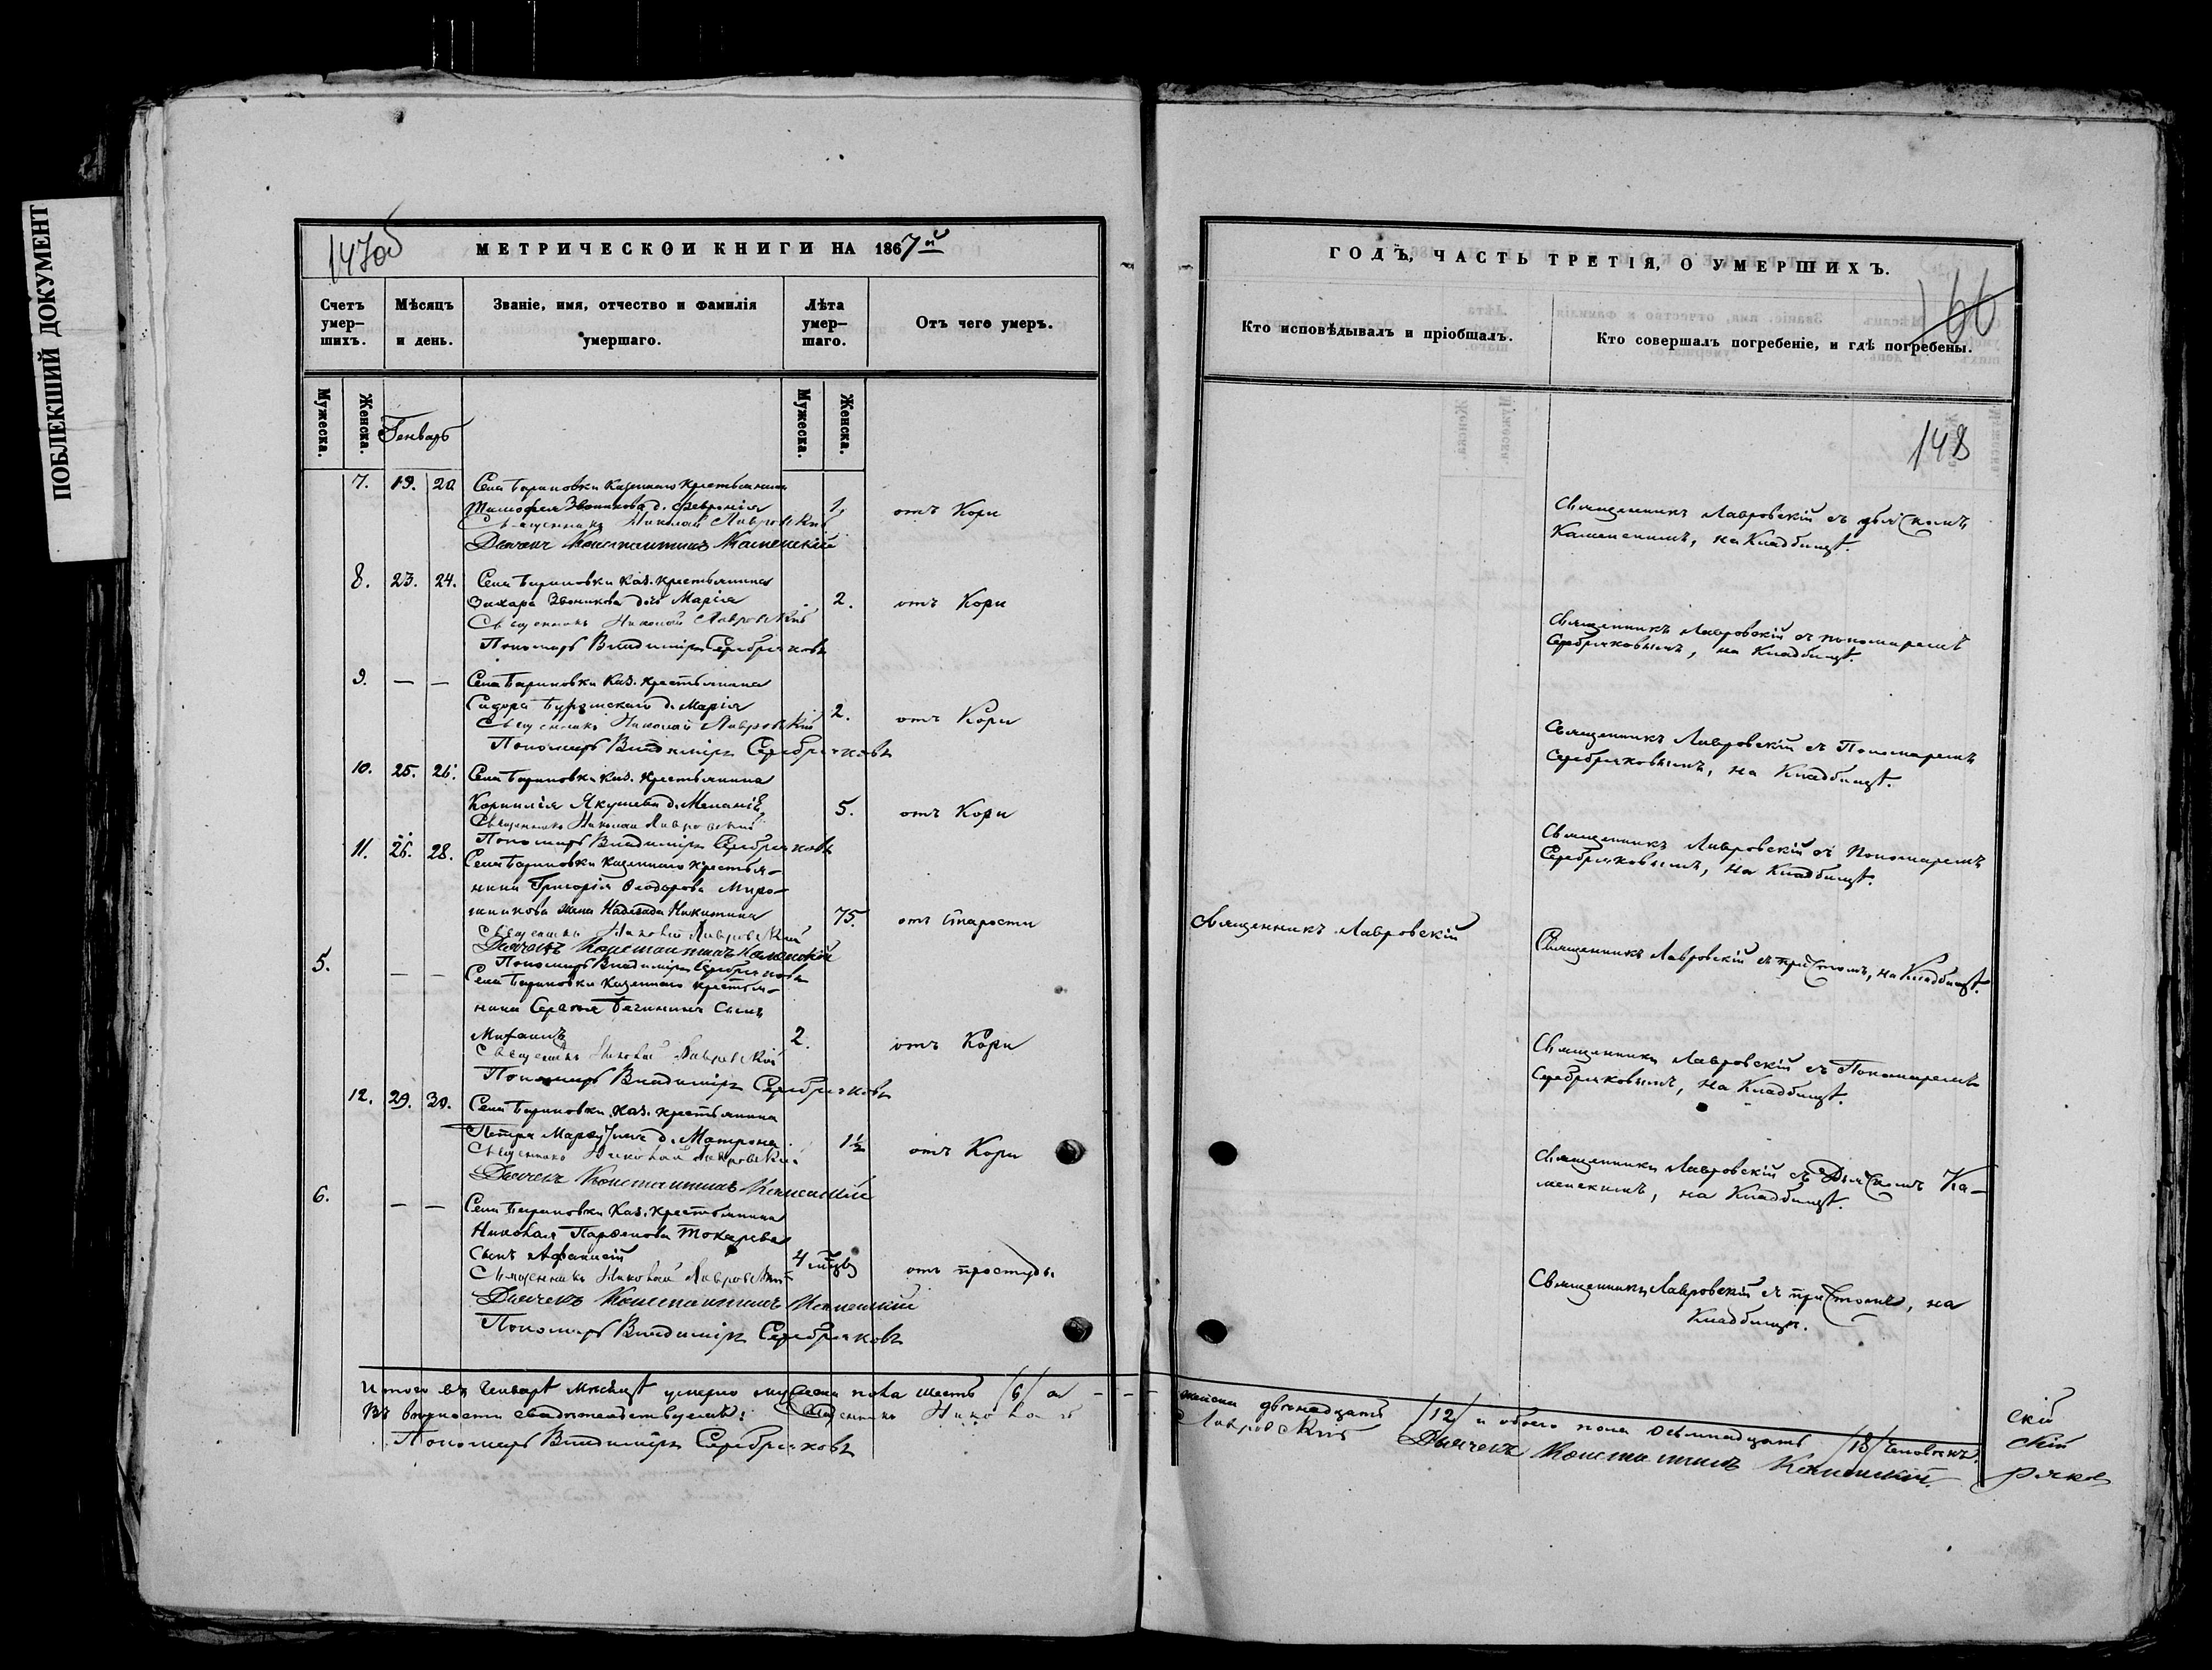 ПОБЛЕКШИЙ ДОКУМЕНТ
147об
МЕТРИЧЕСКОЙ КНИГИ НА 1867й
Счетъ умер-шихъ.
Мѣсяцъ и день.
Званіе, имя, отчество и фамилія умершаго.
Лѣта умер-шаго.
Отъ чего умеръ.
Мужеска.
Женска.
Генварь
Мужеска.
Женска.
7. 19. 20. Села Бариновки казеннаго крестьянина
Тимофея Звоникова д. Феврония 1, отъ Кори
Священникъ Николай Лавровскій
Дьячекъ Константинъ Каменскій
8. 23. 24. Села Бариновки каз. крестьянина
Захара Звоникова дочь Марія 2. отъ Кори
Священникъ Николай Лавровскій
Пономарь Владиміръ Серебряковъ
9. — — Села Бариновки каз. крестьянина
Сидора д. Марія 2. отъ Кори
Священникъ Николай Лавровскій
Пономарь Владиміръ Серебряковъ
10. 25. 26. Села Бариновки каз. крестьянина
Корнилія Якушева д. Меланія 5. отъ Кори
Священникъ Николай Лавровскій
Пономарь Владиміръ Серебряковъ
11. 26. 28. Села Бариновки казеннаго крестья-
нина Григорія Феодорова Миро-
шникова жена Надежда Никитина 75. отъ старости
Священникъ Николай Лавровскій
Дьячекъ Константинъ Каменскій
Пономарь Владиміръ Серебряковъ
5. — — Села Бариновки казеннаго крестья-
нина Сергея сынъ
Михаилъ 2. отъ Кори
Священникъ Николай Лавровскій
Пономарь Владиміръ Серебряковъ
12. 29. 30. Села Бариновки каз. крестьянина
Петра д. Матрона 1½ отъ Кори
Священникъ Николай Лавровскій
Дьячекъ Константинъ Каменскій
6. — — Села Бариновки каз. крестьянина
Николая Парфенова Токарева
сынъ Афанасій 4 отъ простуды
Священникъ Николай Лавровскій
Дьячекъ Константинъ Каменскій
Пономарь Владиміръ Серебряковъ
Итого въ Генварѣ мѣсяцѣ умерло мужеска пола шесть /6/ а - -
Въ вѣрности свидѣтельствуемъ: Священникъ Николай
Пономарь Владиміръ Серебряковъ
ГОДЪ, ЧАСТЬ ТРЕТІЯ, О УМЕРШИХЪ.
166
Кто исповѣдывалъ и пріобщалъ.
Кто совершалъ погребеніе, и гдѣ погребены.
148
Священникъ Лавровскій съ дьячкомъ
Каменскимъ, на Кладбищѣ.
Священникъ Лавровскій съ пономаремъ
Серебряковымъ, на Кладбищѣ.
Священникъ Лавровскій съ Пономаремъ
Серебряковымъ, на Кладбищѣ.
Священникъ Лавровскій съ Пономаремъ
Серебряковымъ, на Кладбищѣ.
Священникъ Лавровскій
Священникъ Лавровскій съ причтомъ, на Кладбищѣ.
Священникъ Лавровскій съ Пономаремъ
Серебряковымъ, на Кладбищѣ.
Священникъ Лавровскій съ Дьячкомъ Ка-
менскимъ, на Кладбищѣ.
Священникъ Лавровскій съ причтомъ, на
Кладбищѣ.
- женска двѣнадцать /12/ и обоего пола восьмнадцать /18/ человѣкъ.
Лавровскій Дьячекъ Константинъ Каменскій.
скій
скій
ряков